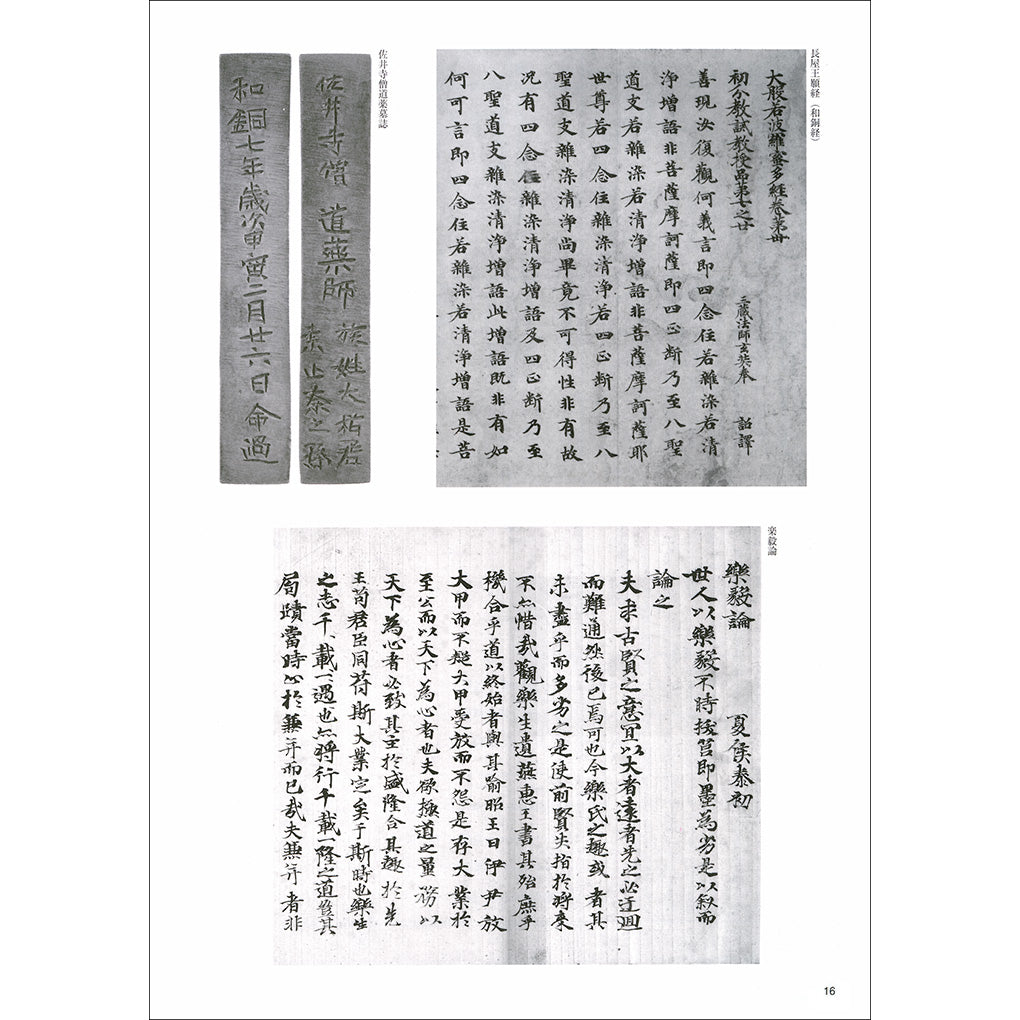 長屋王願経（和銅経）
大般若波羅蜜多經卷第卅
初分教誡教授品第七之廿　三蔵法師玄奘奉　詔譯
善現汝復觀何義言即四念住若雜染若清
淨増語非菩薩摩訶薩即四正断乃至八聖
道支若雜染若清淨増語非菩薩摩訶薩耶
世尊若四念住雜染清淨若四正断乃至八
聖道支雜染清淨尚畢竟不可得性非有故
況有四念住雜染清淨増語及四正断乃至
八聖道支雜染清淨増語此増語既非有如
何可言即四念住若雜染若清淨増語是菩
佐井寺僧道薬墓誌
佐井寺僧　道藥師
族姓大楢君
素止奈之孫
和銅七年歳次甲寅二月廿六日命過
楽毅論
樂毅論　夏侯泰初
世人以樂毅不時拔莒即墨為劣是以叙而
論之
夫求古賢之意宜以大者遠者先之必迂迴
而難通然後已焉可也今樂氏之趣或者其
未盡乎而多劣之是使前賢失指於將来
不亦惜哉觀樂生遺燕惠王書其殆庶乎
機合乎道以終始者與其喻昭王曰伊尹放
大甲而不疑大甲受放而不怨是存大業於
至公而以天下為心者也夫欲極道之量務以
天下為心者必致其主於盛隆合其趣於先
王苟君臣同符斯大業定矣于斯時也樂生
之志千載一遇也亦將行千載一隆之道豈其
局蹟當時止於兼并而已哉夫兼并者非
16